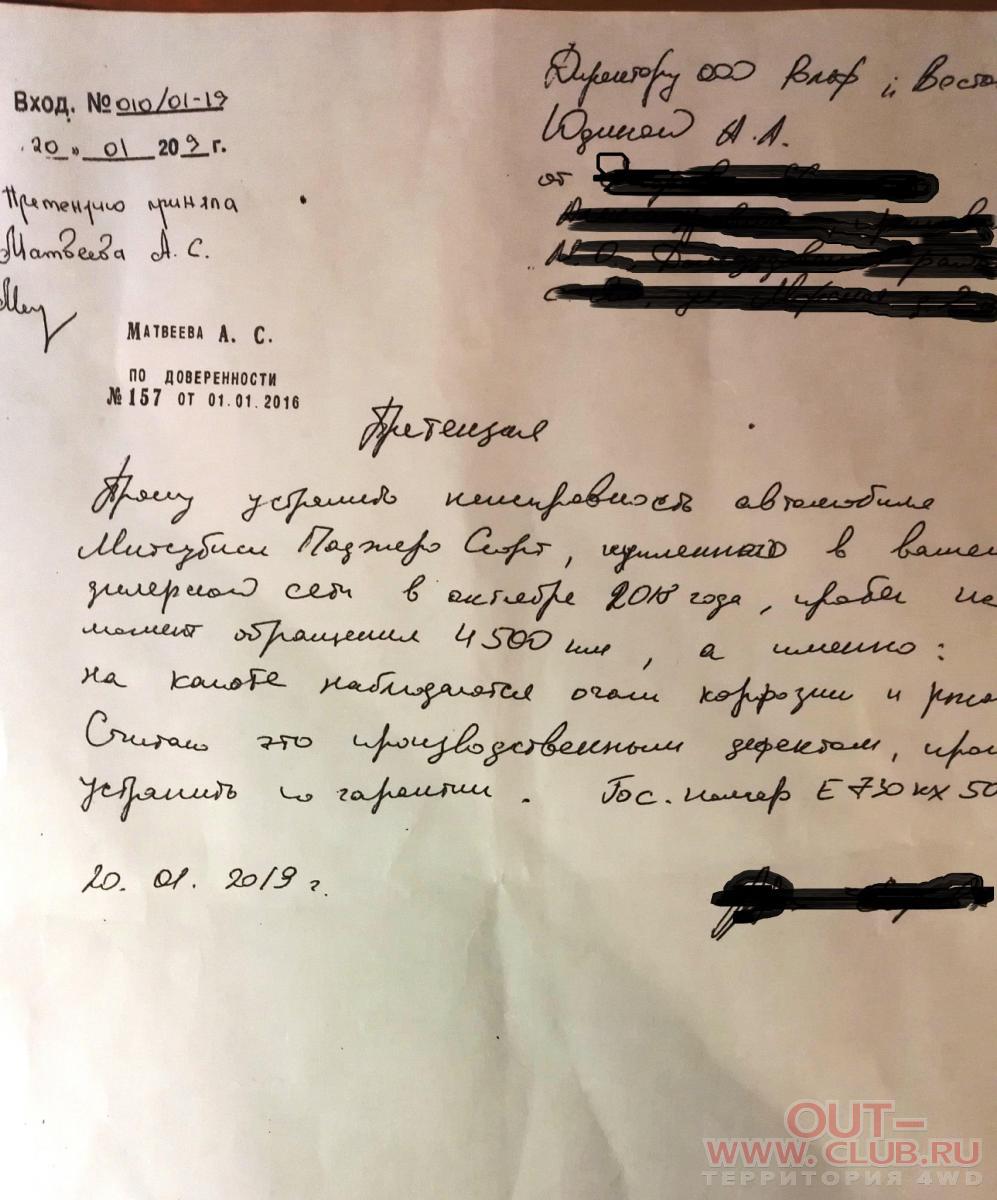 Вход. № 010/01-19
20 " 01 2019 г.
Претензию приняла
Матвеева А. С.
МАТВЕЕВА А. С.
ПО ДОВЕРЕННОСТИ
№ 157 ОТ 01.01.2016
Директору ООО Вльф и Восто
Юдиной А. А.
от
Претензия
Прошу устранить неисправность автомобиля
Митсубиси Паджеро Спорт, купленного в вашей
дилерской сети в октябре 2018 года, пробег на
момент обращения 4500 км, а именно:
на капоте наблюдаются очаги коррозии и ржа
Считаю это производственным дефектом, про
устранить по гарантии. Гос. номер Е 730 кх 50
20. 01. 2019 г.
OUT-
WWW.CLUB.RU
ТЕРРИТОРИЯ 4WD